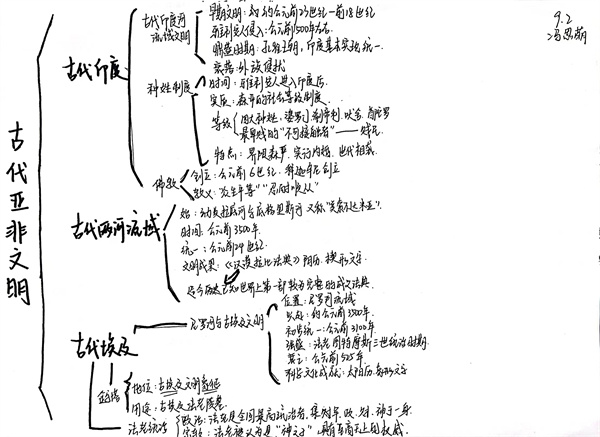 9.2
冯思萌
古代亚非文明
古代印度
古代印度河流域文明
早期文明：约公元前23世纪一前18世纪
雅利安人侵入：公元前1500年左右
鼎盛时期：孔雀王朝，印度基本实现统一.
衰落：外族侵扰
种姓制度
时间：雅利安人进入印度后.
实质：森严的社会等级制度.
等级
四大种姓，婆罗门 刹帝利、吠舍、首陀罗
最卑贱的"不可接触者"——贱民
特点：界限森严，实行内婚，世代相袭.
佛教
创立：公元前6世纪，释迦牟尼创立
教义："众生平等" "忍耐顺从"
古代两河流域
始：幼发拉底河与底格里斯河 又称"美索不达米亚".
时间：公元前3500年.
统一：公元前24世纪.
文明成果：《汉谟拉比法典》 阴历，楔形文字
迄今已知世界上第一部较为完整的成文法典
古代埃及
尼罗河与古埃及文明
位置：尼罗河流域
约公元前3500年.
初步统一：公元前3100年
强盛：法老图特摩斯三世统治时期.
灭亡：公元前525年
科学文化成就：太阳历、象形文字
金字塔
地位：古埃及文明象征
用途：古埃及法老陵墓
法老统治
政治：法老是全国最高统治者，集财、军、政、神于一身
法老被认为是"神之子"，具有至高无上的权威